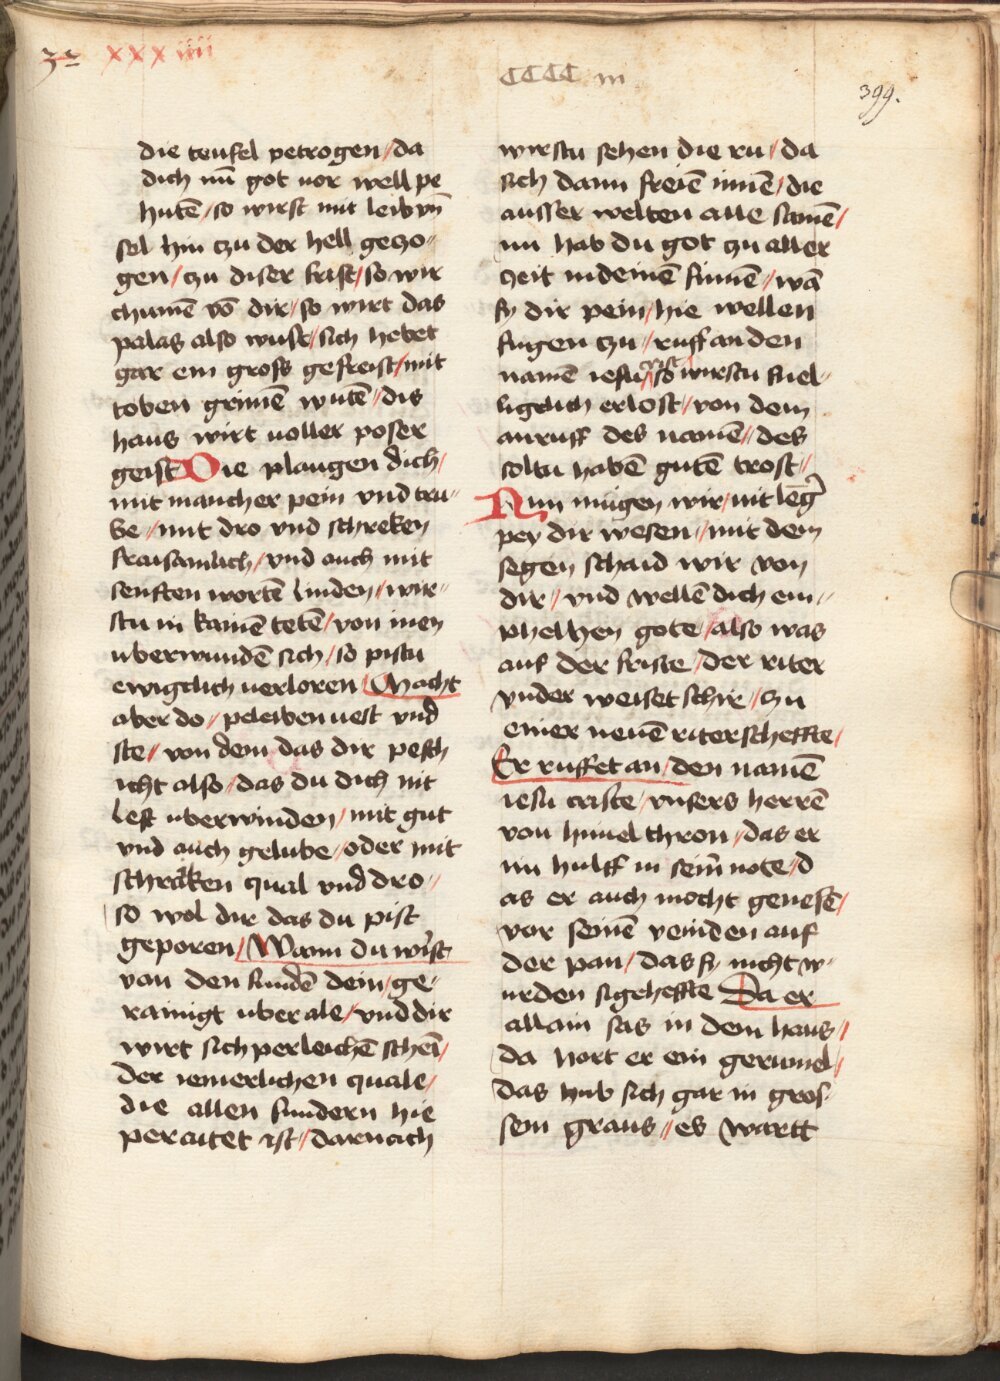 xxxiiii
CCCC iii
399.
die teufel petrogen / da
dich nū got vor well pe
hutē / so wirst mit leib vn̄
sel hin czu der hell geczo-
gen / czu diser frist / so wir
chumē vō dir / so wirt das
palas also wust / sich hebet
gar ein gross gefreist / mit
toben grimē wutē / dis
haus wirt voller poser
geist Die plaugen dich /
mit mancher pein vnd tru-
be / mit dro vnd schreken
fraisamlich / vnd auch mit
senften wortē linden / wir-
stu in kainē tetē / von inen
vberwundē sich / so pistu
ewigclich verloren / Macht
aber do / peleiben vest vnd
ste / von dem das dir pesch
icht also / das du dich nit
lest vberwinden / mit gut
vnd auch gelube / oder mit
schraken qual vnd dro /
so wol dir das du pist
geporen / Wann du wirst
von den sundē dein / ge-
rainigt vber ale / vnd dir
wirt sich perleichē schein /
der iemerlichen quale /
die allen sundern hie
peraitet ist / darnach
wirstu sehen die ru / da
sich dann freiē innē / die
ausser welten alle samē /
nu hab du got czu aller
czeit in deinē sinnē / wā
sy dir pein / hie wellen
fugen czu / ruff an den
namē iesu crist / so wirstu snel-
ligclich erlost / von dem
anruff des namē / des
soltu habē gutē trost /
Nun mugen wir / nit leng̅
pey dir wesen / mit dem
segen schaid wir von
dir / vnd wellē dich em-
phelhen gote / also was
auf der friste / der riter
vnder weiset schir / zu
einer neuē riterscheffte /
Er ruffet an / den namē
iesu criste / vnsers herrē
von himel thron / das er
im hulff in seim̄ note / d
as er auch mocht genesē /
vor seinē veinden auf
der pan / das sy nicht w-
urden sigheffte Da er
allain sas in dem haus /
da hort er ein gerumel /
das hub sich gar in gros
sem graus / es wartt